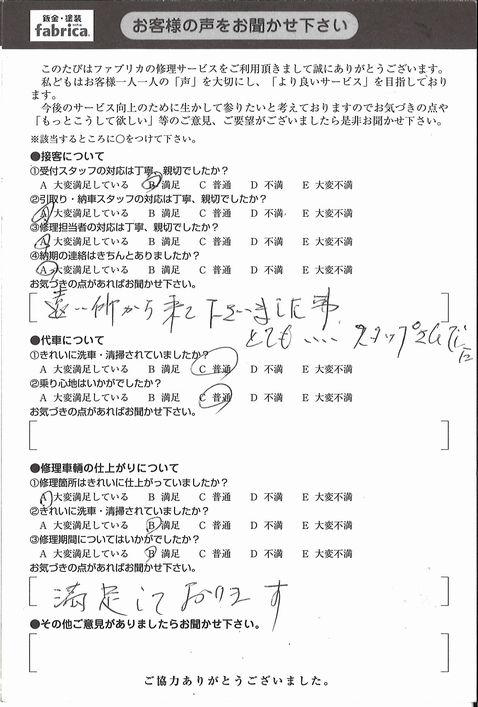 鈑金・塗装
fabrica.
お客様の声をお聞かせ下さい
このたびはファブリカの修理サービスをご利用頂きまして誠にありがとうございます。
私どもはお客様一人一人の「声」を大切にし、「より良いサービス」を目指しており
ます。
今後のサービス向上のために生かして参りたいと考えておりますのでお気づきの点や
「もっとこうして欲しい」等のご意見、ご要望がございましたら是非お聞かせ下さい。
※該当するところに○をつけて下さい。
●接客について
①受付スタッフの対応は丁寧、親切でしたか？
A 大変満足している B 満足 C 普通 D 不満 E 大変不満
②引取り・納車スタッフの対応は丁寧、親切でしたか？
A 大変満足している B 満足 C 普通 D 不満 E 大変不満
③修理担当者の対応は丁寧、親切でしたか？
A 大変満足している B 満足 C 普通 D 不満 E 大変不満
④納期の連絡はきちんとありましたか？
A 大変満足している B 満足 C 普通 D 不満 E 大変不満
お気づきの点があればお聞かせ下さい。
遠い所から来て下さいました事
とても いい スタッフさんでした
●代車について
①きれいに洗車・清掃されていましたか？
A 大変満足している B 満足 C 普通 D 不満 E 大変不満
②乗り心地はいかがでしたか？
A 大変満足している B 満足 C 普通 D 不満 E 大変不満
お気づきの点があればお聞かせ下さい。
●修理車輌の仕上がりについて
①修理箇所はきれいに仕上がっていましたか？
A 大変満足している B 満足 C 普通 D 不満 E 大変不満
②きれいに洗車・清掃されていましたか？
A 大変満足している B 満足 C 普通 D 不満 E 大変不満
③修理期間についてはいかがでしたか？
A 大変満足している B 満足 C 普通 D 不満 E 大変不満
お気づきの点があればお聞かせ下さい。
満足しております
●その他ご意見がありましたらお聞かせ下さい。
ご協力ありがとうございました。